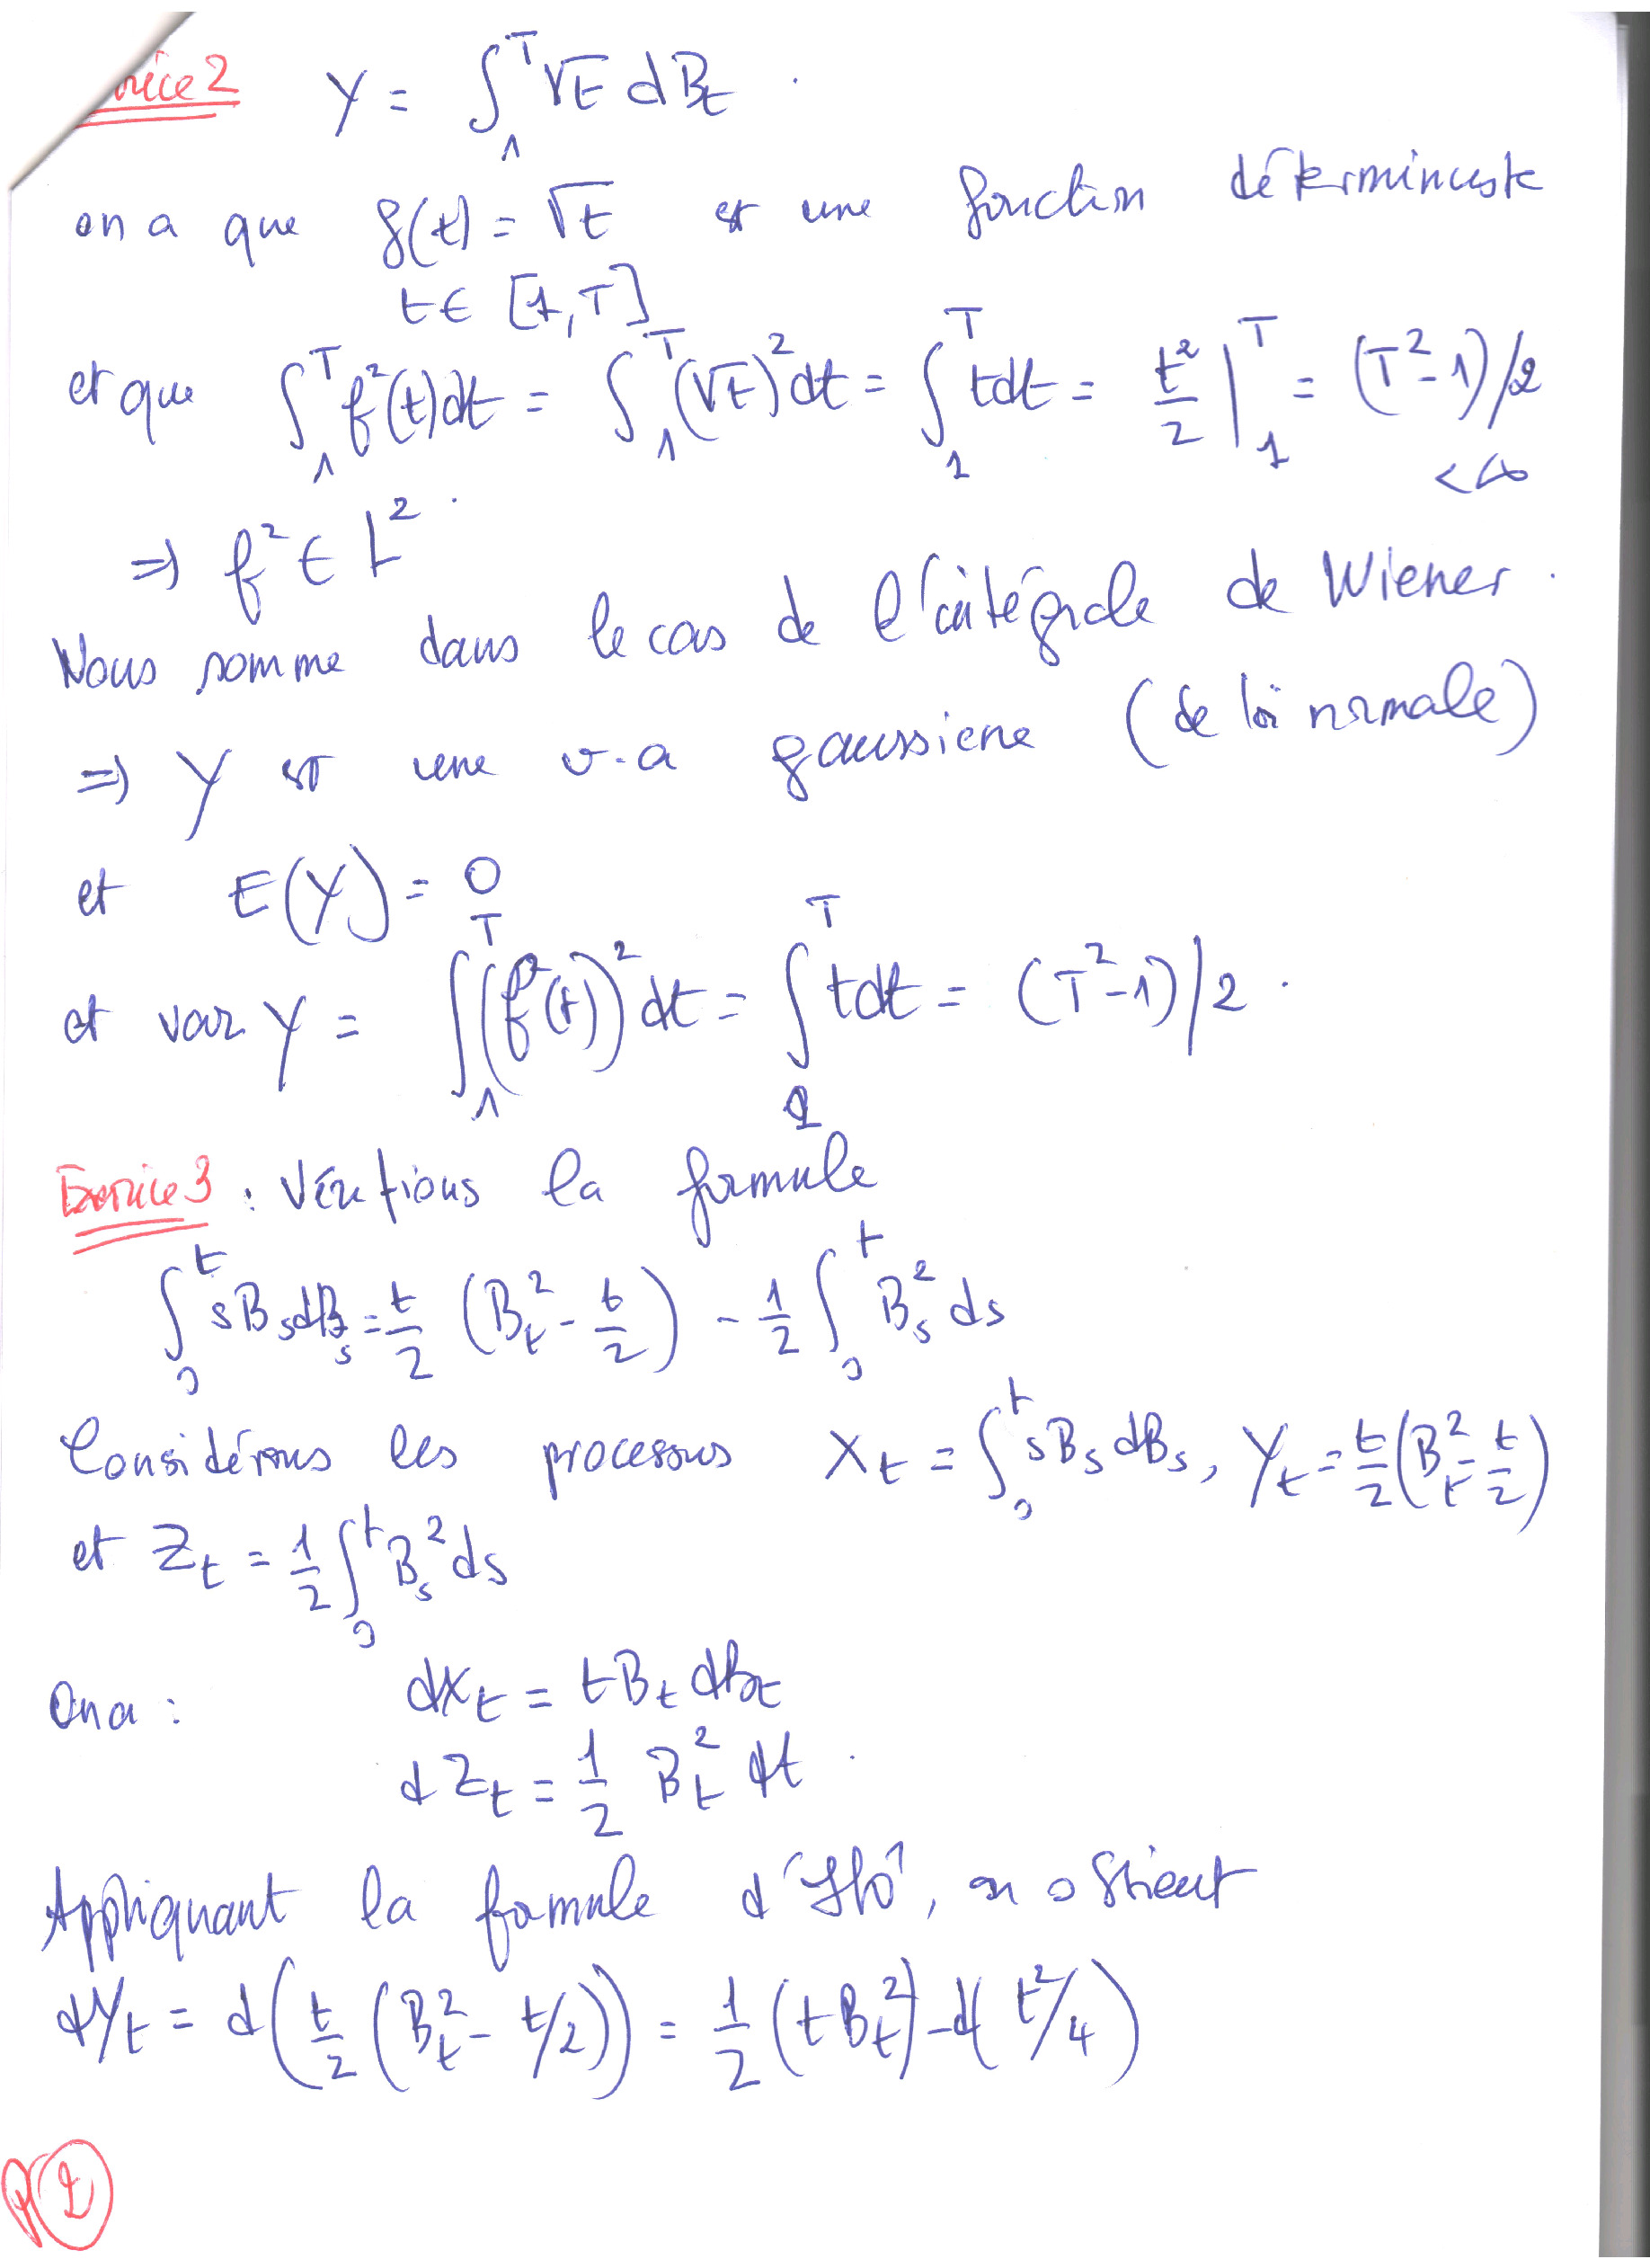 rcice 2 Y = ∫_1^T √t dB_t .
on a que f(t) = √t est une fonction déterministe
t ∈ [1, T]
et que ∫_1^T f²(t) dt = ∫_1^T (√t)² dt = ∫_1^T t dt = t²/2 |_1^T = (T² - 1)/2
< ∞
⇒ f² ∈ L² .
Nous somme dans le cas de l'intégrale de Wiener .
⇒ Y est une v.a gaussiene (de loi normale)
et E(Y) = 0
et var Y = ∫_1^T (f(t))² dt = ∫_1^T t dt = (T² - 1)/2 .
Exercice 3 : Vérifions la formule
∫_0^t s B_s dB_s = t/2 (B_t² - t/2) - 1/2 ∫_0^t B_s² ds
Considérons les processus X_t = ∫_0^t s B_s dB_s , Y_t = t/2 (B_t² - t/2)
et Z_t = 1/2 ∫_0^t B_s² ds
On a : dX_t = t B_t dB_t
dZ_t = 1/2 B_t² dt .
Appliquant la formule d'Itô, on obtient
dY_t = d( t/2 (B_t² - t/2)) = 1/2 (t B_t²) - d( t²/4 )